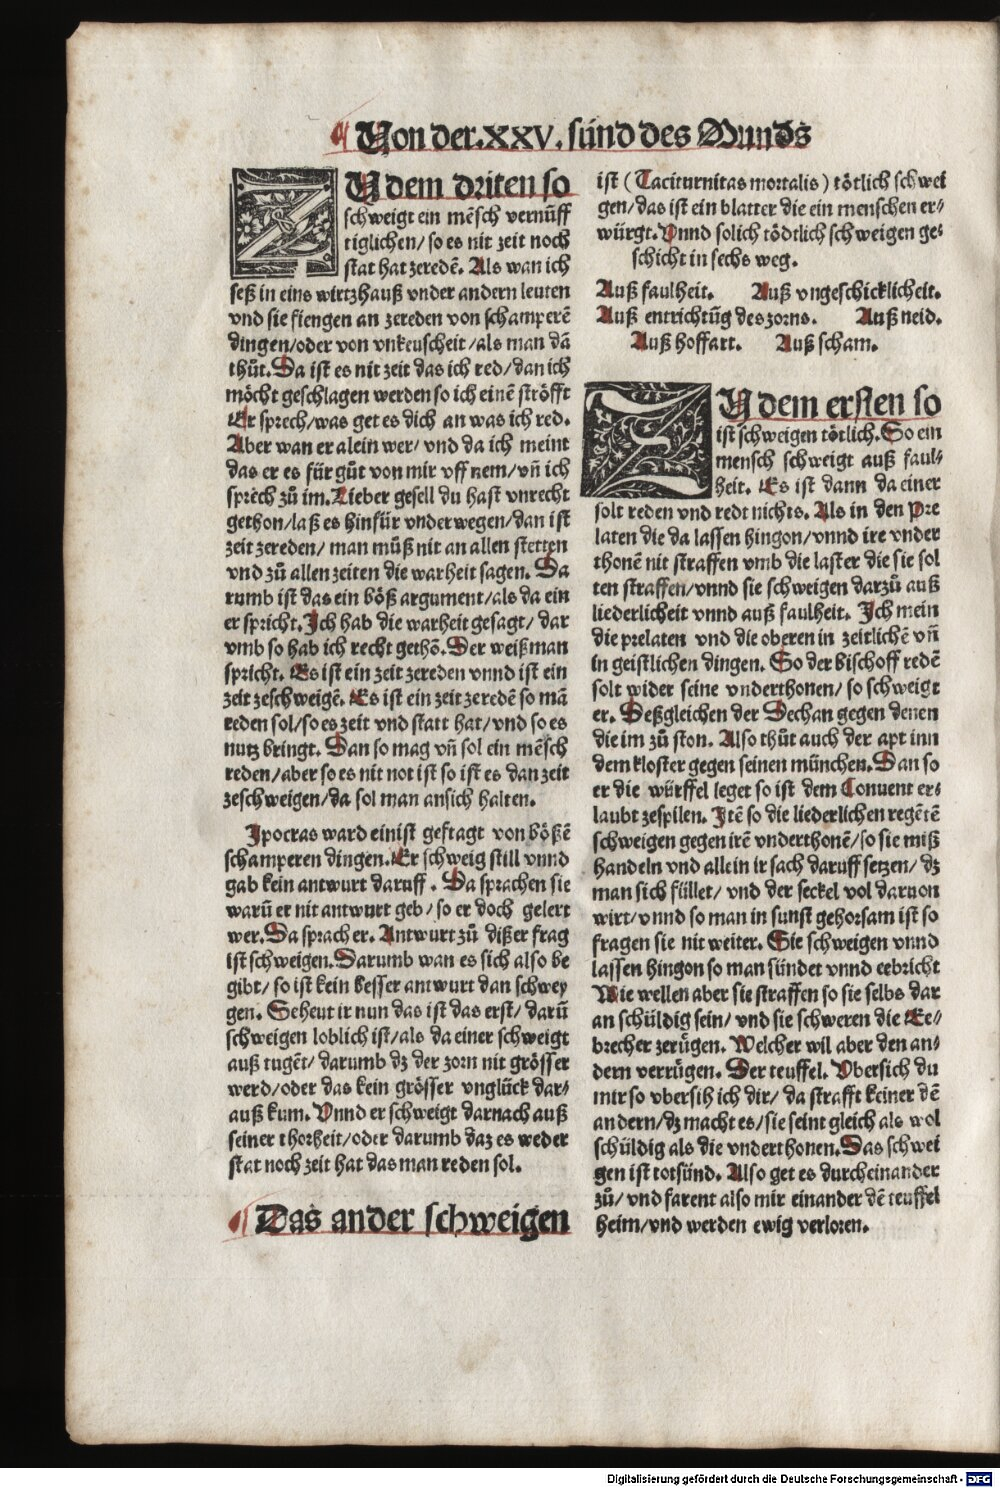 Von der .XXV. sünd des Munds
ZU dem driten so
schweigt ein mēsch vernünff
tiglichen/ so es nit zeit noch
stat hat zeredē. Als wan ich
seß in eins wirtzhauß vnder andern leuten
vnd sie fiengen an zereden von schamperē
dingen/oder von vnkeuscheit/als man dā
thůt. Da ist es nit zeit das ich red/dan ich
möcht geschlagen werden so ich einē ströfft
Er sprech/was get es dich an was ich red.
Aber wan er alein wer/ vnd da ich meint
das er es für gůt von mir vff nem/vñ ich
sprech zů im. Lieber gesell du hast vnrecht
gethon/laß es hinfür vnderwegen/dan ist
zeit zereden/ man můß nit an allen stetten
vnd zů allen zeiten die warheit sagen. Da
rumb ist das ein böß argument/als da ein
er spricht. Ich hab die warheit gesagt/ dar
vmb so hab ich recht gethō. Der weiß man
spricht. Es ist ein zeit zereden vnnd ist ein
zeit zeschweigē. Es ist ein zeit zeredē so mā
reden sol/so es zeit vnd statt hat/vnd so es
nutz bringt. Dan so mag vñ sol ein mēsch
reden/aber so es nit not ist so ist es dan zeit
zeschweigen/da sol man ansich halten.
Ipocras ward einist gefragt von bößē
schamperen dingen. Er schweig still vnnd
gab kein antwurt daruff. Da sprachen sie
warū er nit antwurt geb/ so er doch gelert
wer. Da sprach er. Antwurt zů dißer frag
ist schweigen. Darumb wan es sich also be
gibt/ so ist kein besser antwurt dan schwey
gen. Sehent ir nun das ist das erst/ darū
schweigen loblich ist/als da einer schweigt
auß tugēt/ darumb dz der zorn nit grösser
werd/oder das kein grösser vnglück dar⸗
auß kum. Vnnd er schweigt darnach auß
seiner thorheit/oder darumb daz es weder
stat noch zeit hat das man reden sol.
Das ander schweigen
ist (Taciturnitas mortalis) tötlich schwei
gen/das ist ein blatter die ein menschen er⸗
würgt. Vnnd solich tödtlich schweigen ge⸗
schicht in sechs weg.
Auß faulheit. Auß vngeschicklicheit.
Auß entrichtūg des zorns. Auß neid.
Auß hoffart. Auß scham.
ZU dem ersten so
ist schweigen tötlich. So ein
mensch schweigt auß faul⸗
heit. Es ist dann da einer
solt reden vnd redt nichts. Als in den Pre
laten die da lassen hingon/vnnd ire vnder
thonē nit straffen vmb die laster die sie sol
ten straffen/vnnd sie schweigen darzů auß
liederlicheit vnnd auß faulheit. Ich mein
die prelaten vnd die oberen in zeitlichē vñ
in geistlichen dingen. So der bischoff redē
solt wider seine vnderthonen/ so schweigt
er. Deßgleichen der Dechan gegen denen
die im zů ston. Also thůt auch der apt inn
dem kloster gegen seinen münchen. Dan so
er die würffel leget so ist dem Conuent er⸗
laubt zespilen. Itē so die liederlichen regētē
schweigen gegen irē vnderthonē/so sie miß
handeln vnd allein ir sach daruff setzen/ dz
man sich füllet/ vnd der seckel vol daruon
wirt/ vnnd so man in sunst gehorsam ist so
fragen sie nit weiter. Sie schweigen vnnd
lassen hingon so man sündet vnnd eebricht
Wie wellen aber sie straffen so sie selbs dar
an schüldig sein/ vnd sie schweren die Ee⸗
brecher zerügen. Welcher wil aber den an⸗
dern verrügen. Der teuffel. Vbersich du
mir so vbersih ich dir/ da strafft keiner dē
andern/dz macht es/sie seint gleich als wol
schüldig als die vnderthonen. Das schwei
gen ist totsünd. Also get es durcheinander
zů/ vnd farent also mit einander dē teuffel
heim/vnd werden ewig verloren.
Digitalisierung gefördert durch die Deutsche Forschungsgemeinschaft - DFG